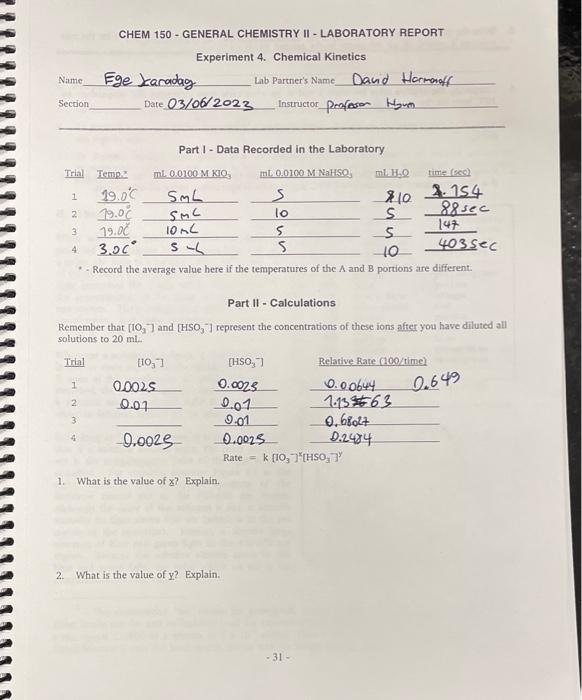 CHEM 150 - GENERAL CHEMISTRY II - LABORATORY REPORT
Experiment 4. Chemical Kinetics
Name Ege Karadag Lab Partner's Name David
Section Date 03/06/2023 Instructor professor
Part I - Data Recorded in the Laboratory
Trial Temp.* mL 0.0100 M KIO₃ mL 0.0100 M NaHSO₃ mL H₂O time (sec)
1 19.0°C 5mL 5 10 154
2 19.0°C 5mL 10 5 88sec
3 19.0°C 10mL 5 5 147
4 3.0C° 5 5 10 403sec
* - Record the average value here if the temperatures of the A and B portions are different.
Part II - Calculations
Remember that [IO₃⁻] and [HSO₃⁻] represent the concentrations of these ions after you have diluted all
solutions to 20 mL.
Trial [IO₃⁻] [HSO₃⁻] Relative Rate (100/time)
1 0.0025 0.0025 0.00644 0.649
2 0.01 0.01 1.1363
3 0.01 0.68027
4 0.0025 0.0025 0.2484
Rate = k [IO₃⁻]ˣ[HSO₃⁻]ʸ
1. What is the value of x? Explain.
2. What is the value of y? Explain.
- 31 -